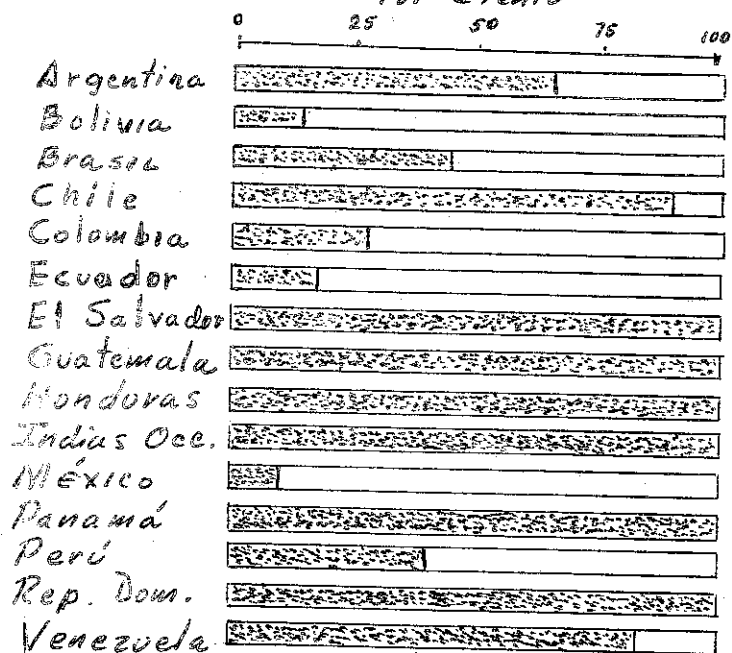 Por Ciento
0 25 50 75 100
Argentina
Bolivia
Brasil
Chile
Colombia
Ecuador
El Salvador
Guatemala
Honduras
Indias Occ.
México
Panamá
Perú
Rep. Dom.
Venezuela